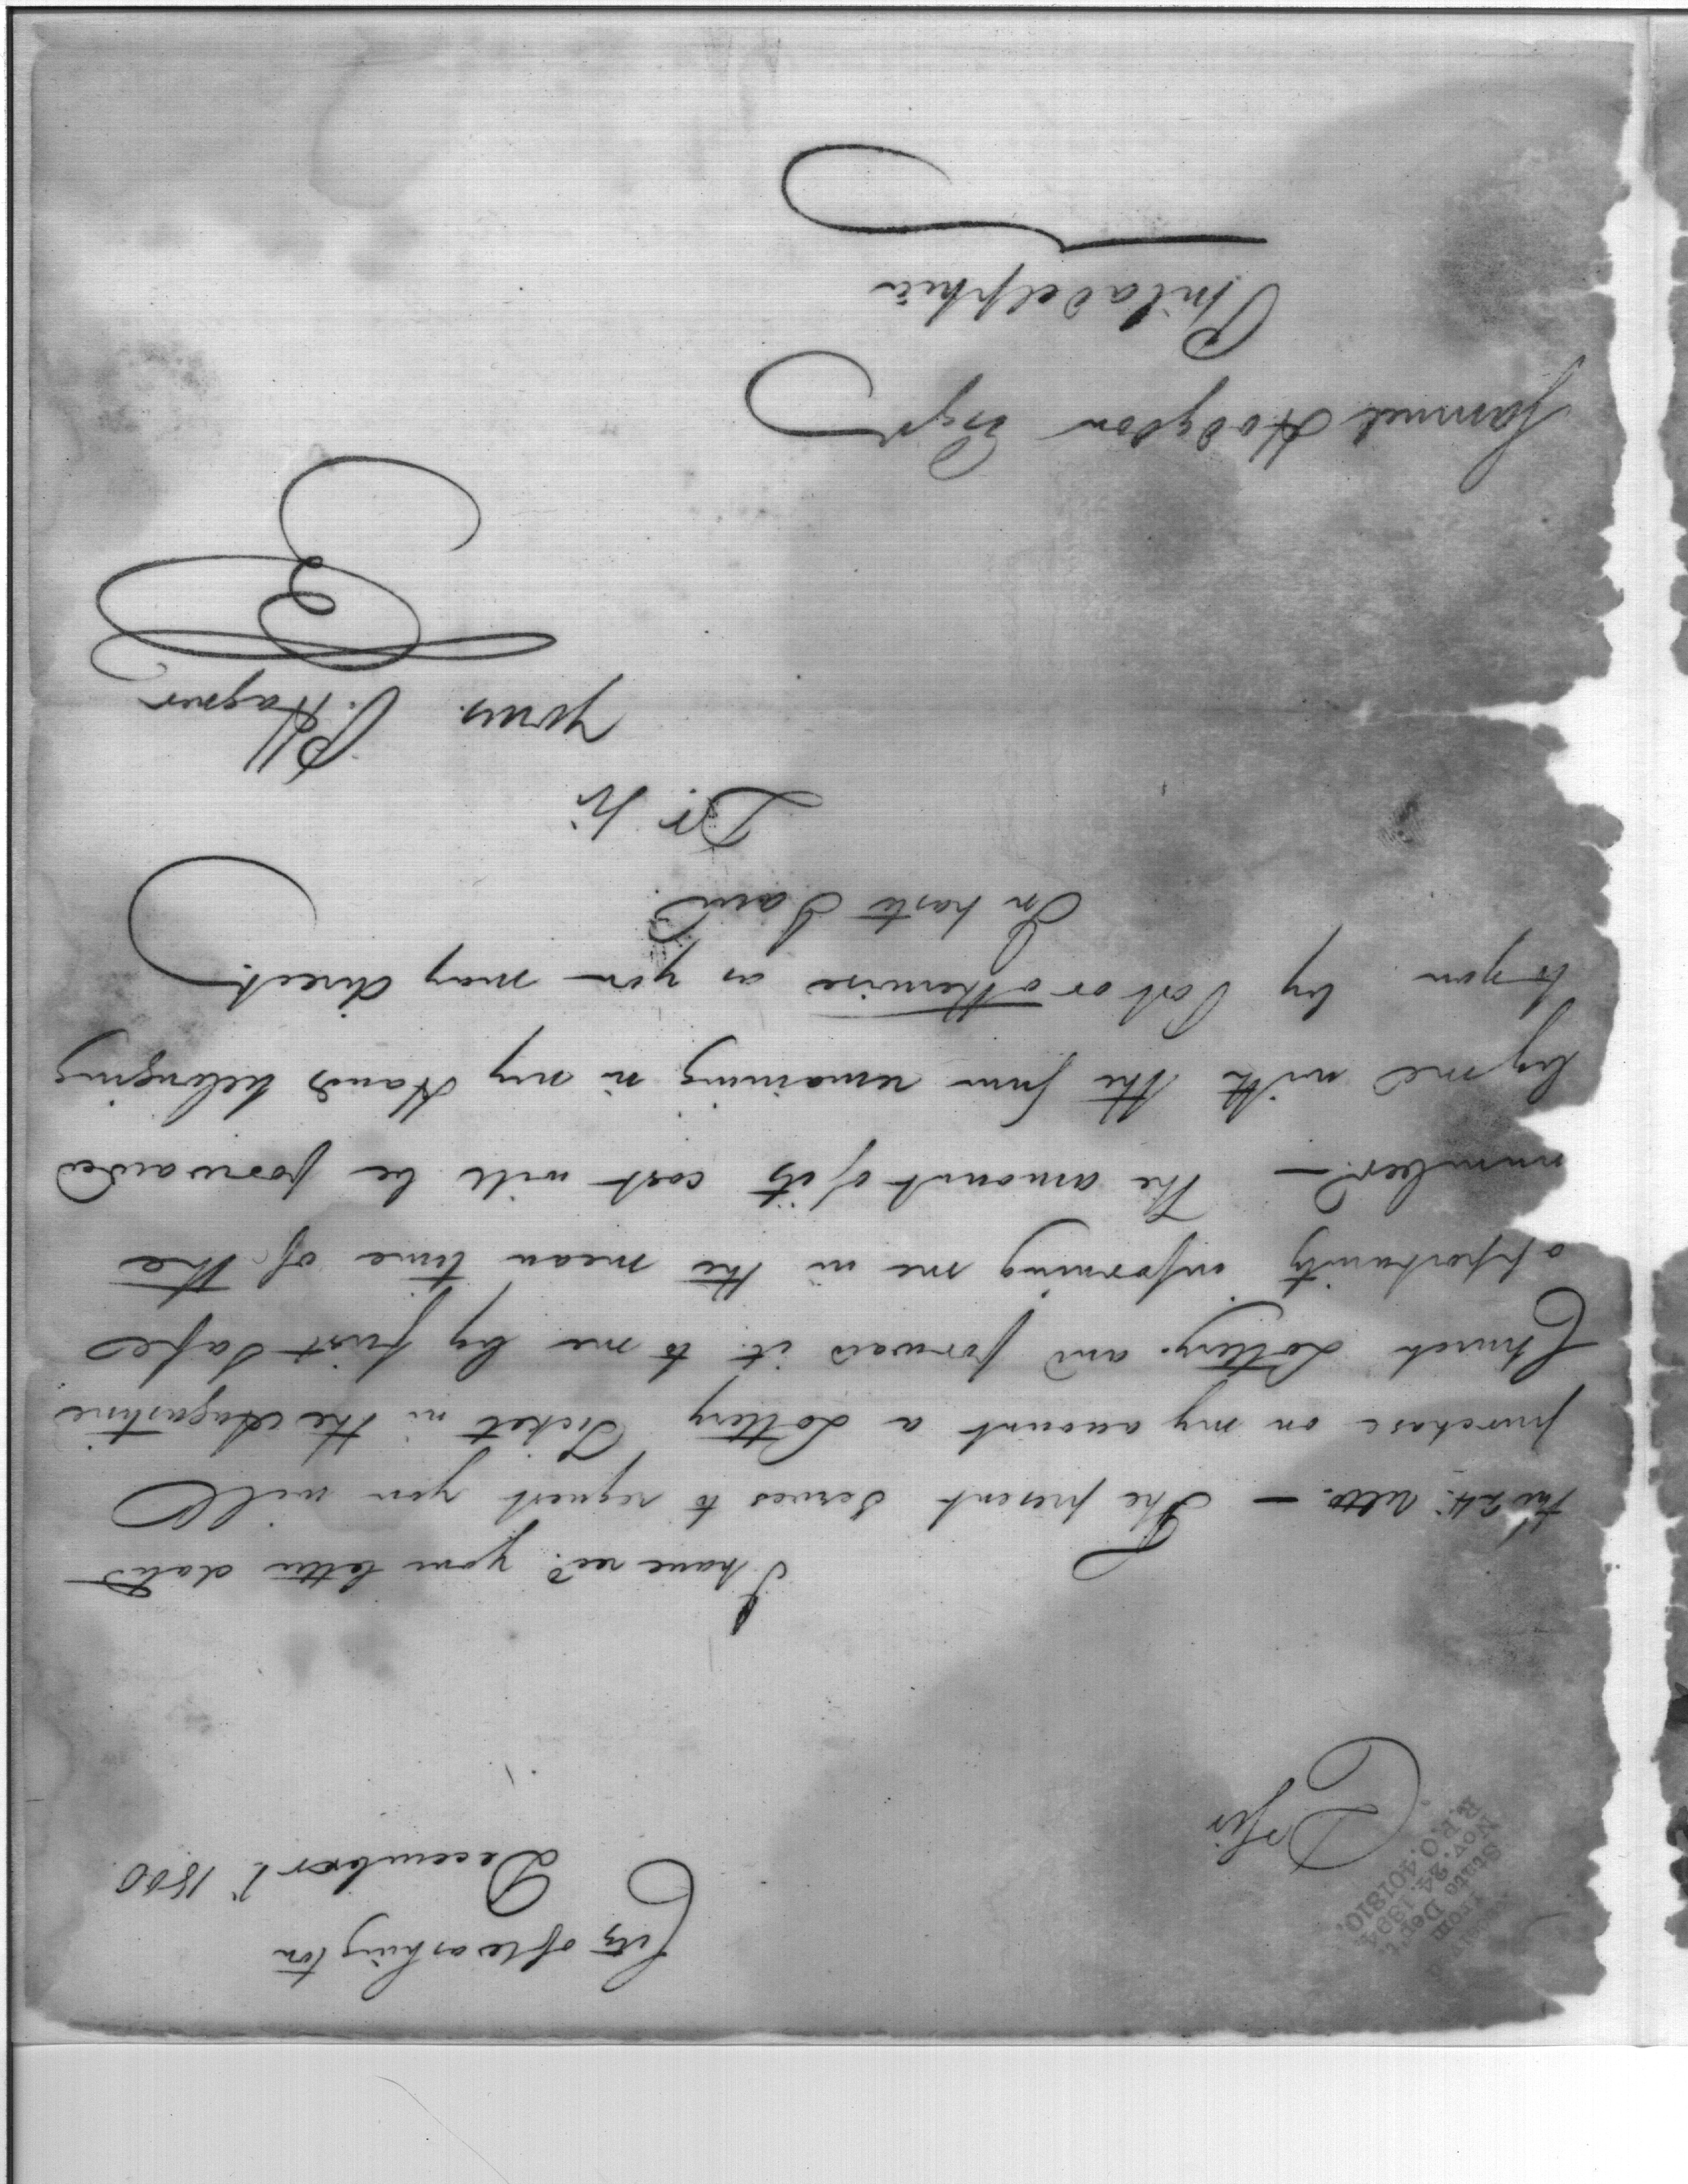 City of Washington
December 1st 1800
Received from
State Dep't,
Nov. 24. 1894.
R.P.O. 401810.
Dr Sir
I have recd. your letter dated
the 24: ulto. — The present serves to request you will
purchase on my account a Lottery Ticket in the Augustine
Church Lottery and forward it to me by first Safe
opportunity informing me in the mean time of the
number — The amount of its cost will be forwarded
by me with the sum remaining in my Hands belonging
to you by Post or otherwise as you may direct.
In haste I am
Dr. Sir
yours P. Hagner
Samuel Hodgdon Esqr
Philadelphia